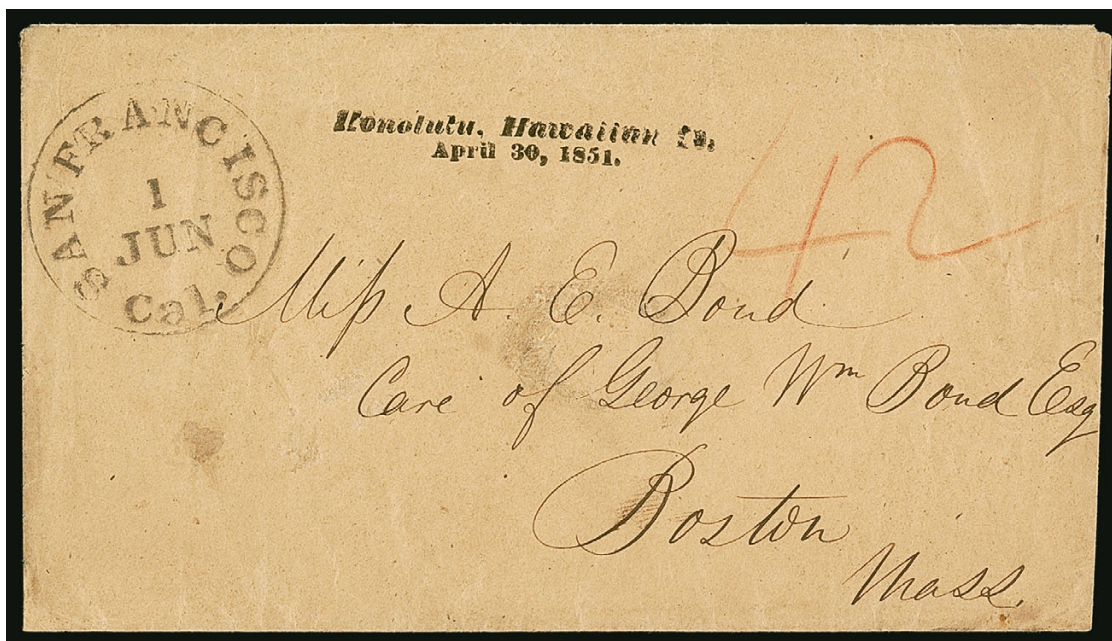 SAN FRANCISCO
1
JUN
Cal.
Honolulu, Hawaiian Is.
April 30, 1851.
42
Miſs A. E. Bond
Care of George Wm Bond Esq
Boston
Mass.